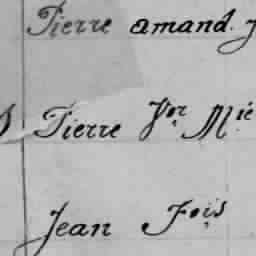 Pierre amand
Pierre Vor Mie
Jean Fois